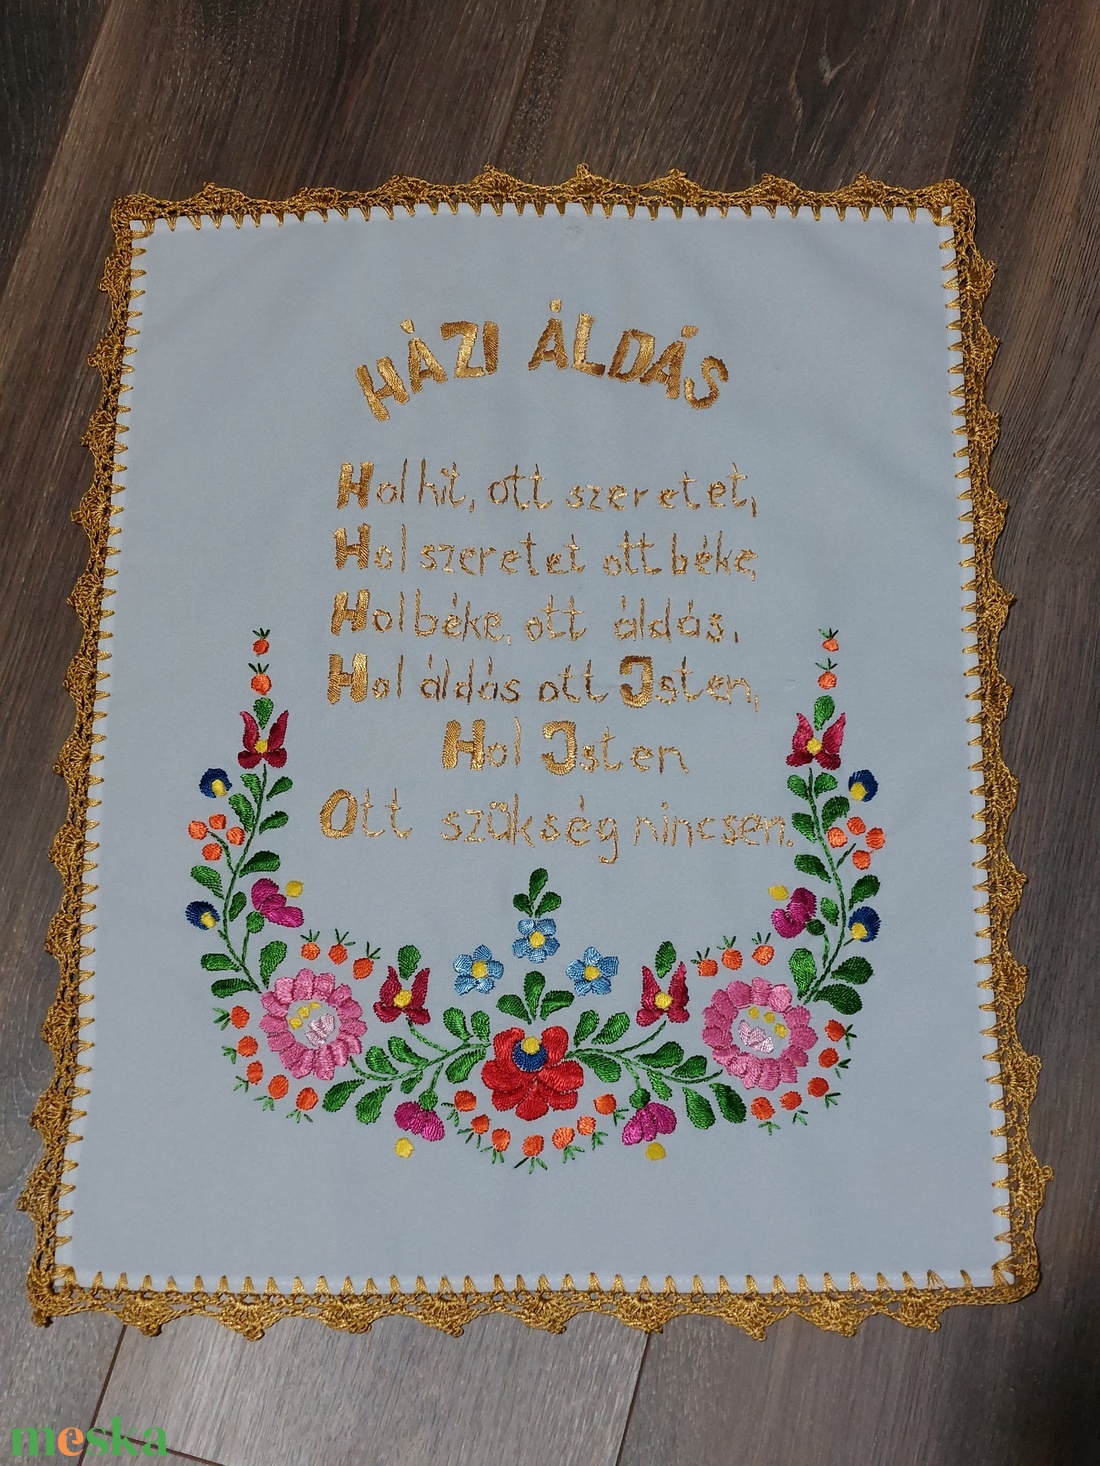 HÁZI ÁLDÁS
Hol hit, ott szeretet,
Hol szeretet ott béke,
Hol béke, ott áldás,
Hol áldás ott Isten,
Hol Isten
Ott szükség nincsen.
meska